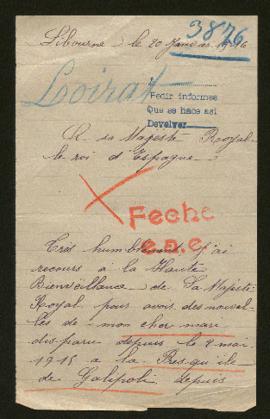 3876
Libourne le 20 Janvier 1916
Loirat
Pedir informes
Que se hace asi
Devolver
A sa Majesté Royal
le roi d'Espagne
Feche
e.n.e.
Très humblement j'ai
recours a la Haute
Bienveillance de Sa Majesté
Royal pour avoir des nouvel
les de mon cher mari
disparu depuis le 2 mai
1915 a la Presqu'ile
de Galipoli depuis